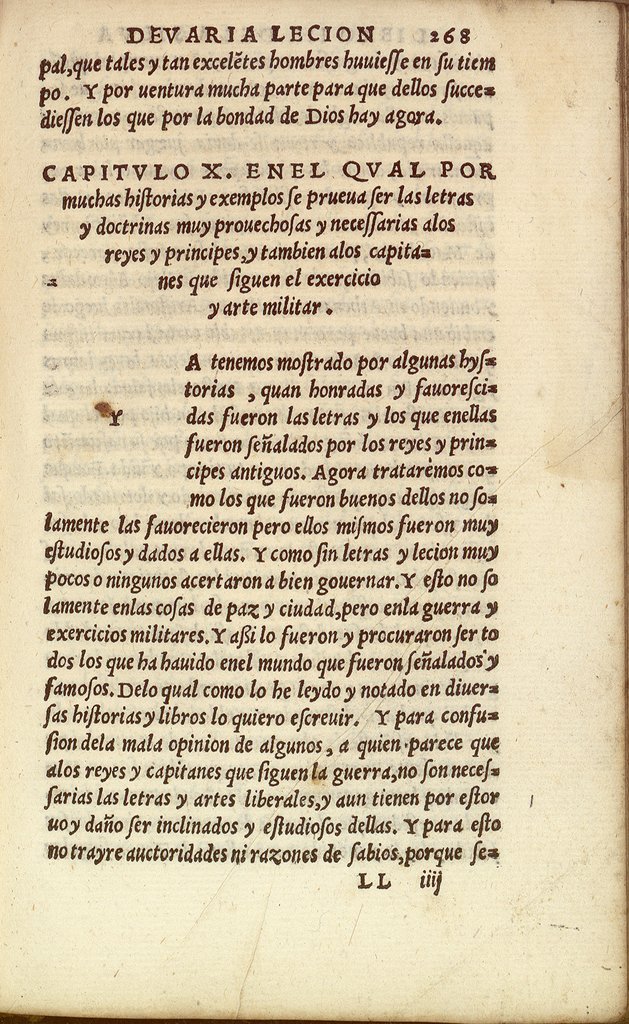 DEVARIA LECION 268
pal,que tales y tan excelẽtes hombres huuieſſe en ſu tiem
po. Y por uentura mucha parte para que dellos ſucce=
dieſſen los que por la bondad de Dios hay agora.
CAPITVLO X. ENEL QVAL POR
muchas hiſtorias y exemplos ſe prueua ſer las letras
y doctrinas muy prouechoſas y neceſſarias alos
reyes y principes, y tambien alos capita=
nes que ſiguen el exercicio
y arte militar.
Y A tenemos moſtrado por algunas hyſ=
torias , quan honradas y fauoreſci=
das fueron las letras y los que enellas
fueron ſeñalados por los reyes y prin=
cipes antiguos. Agora tratarèmos co=
mo los que fueron buenos dellos no ſo=
lamente las fauorecieron pero ellos miſmos fueron muy
eſtudioſos y dados a ellas. Y como ſin letras y lecion muy
pocos o ningunos acertaron a bien gouernar. Y eſto no ſo
lamente enlas coſas de paz y ciudad,pero enla guerra y
exercicios militares. Y aßi lo fueron y procuraron ſer to
dos los que ha hauido enel mundo que fueron ſeñalados y
famoſos. Delo qual como lo he leydo y notado en diuer=
ſas hiſtorias y libros lo quiero eſcreuir. Y para confu=
ſion dela mala opinion de algunos, a quien parece que
alos reyes y capitanes que ſiguen la guerra,no ſon neceſ=
ſarias las letras y artes liberales,y aun tienen por eſtor
uo y daño ſer inclinados y eſtudioſos dellas. Y para eſto
no trayre auctoridades ni razones de ſabios,porque ſe=
LL iiij